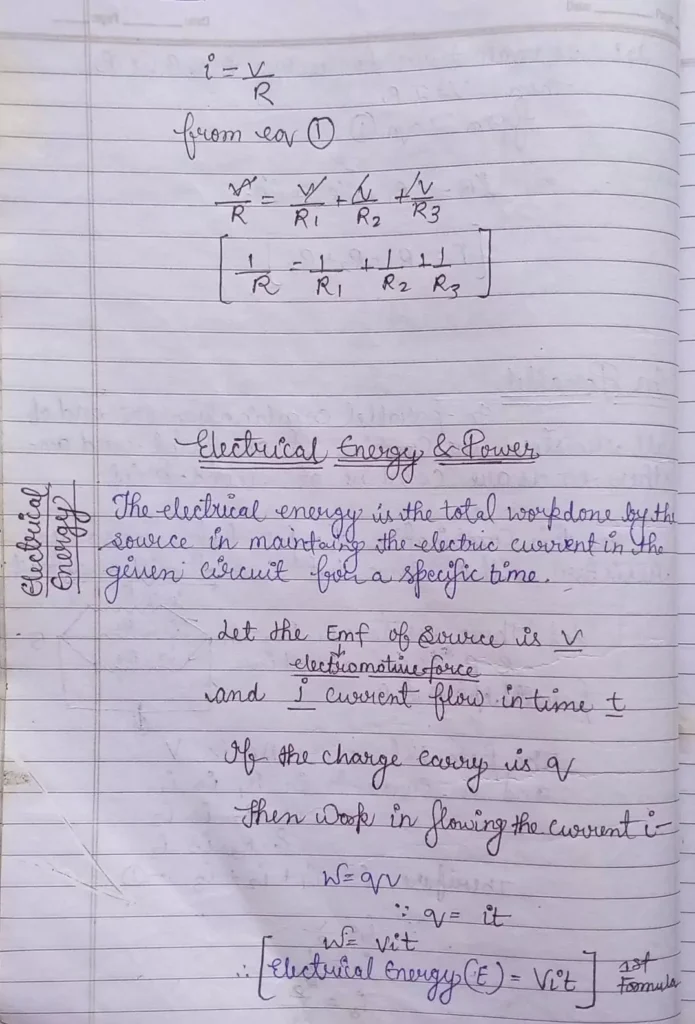 i = V/R
from eqn ①
V/R = V/R1 + V/R2 + V/R3
[1/R = 1/R1 + 1/R2 + 1/R3]
Electrical Energy & Power
Electrical Energy
The electrical energy is the total work done by the
source in maintaing the electric current in the
given circuit for a specific time.
Let the Emf of source is V
electromotive force
and i current flow in time t
If the charge carry is q
Then work in flowing the current i-
W = qv
∵ q = it
W = Vit
∴ [Electrical Energy (E) = Vit] 1st Formula